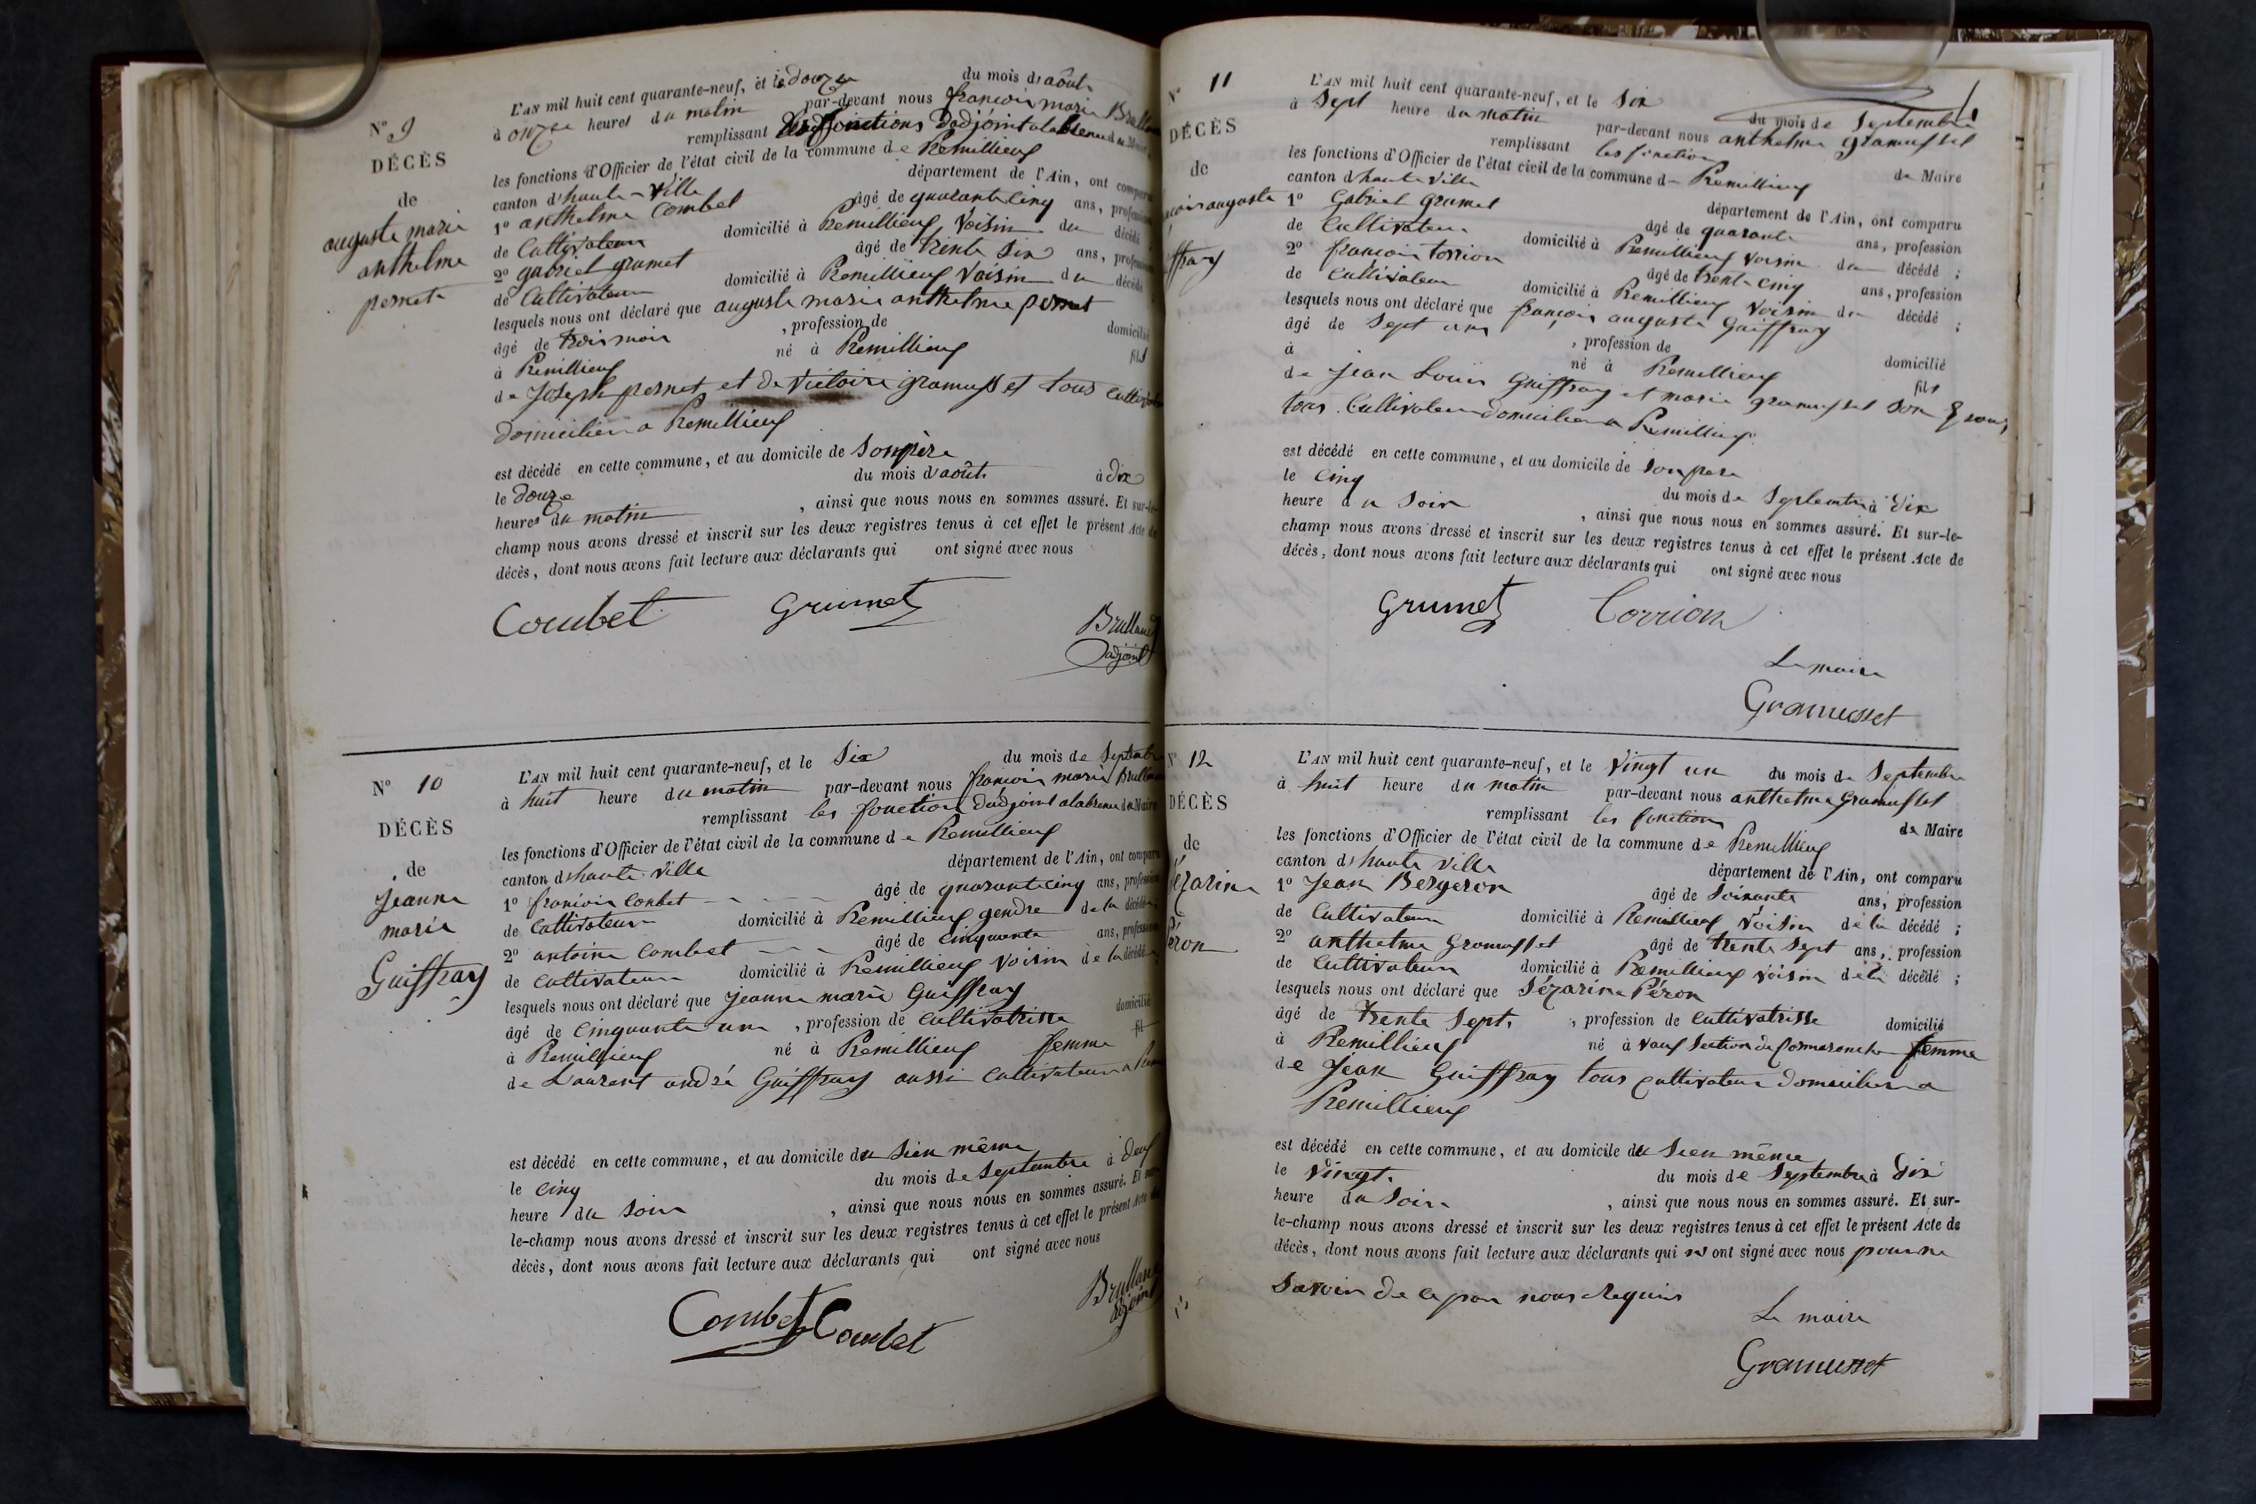 N° 9
DÉCÈS
de
auguste marie
anthelme
pernet
L'AN mil huit cent quarante-neuf, et le douze du mois d'août
à onze heures du matin par-devant nous françois marie Brullan
remplissant les fonctions d'adjoint a l'absence du Maire
les fonctions d'Officier de l'état civil de la commune de Premillieux
canton d'haute-ville département de l'Ain, ont comparu
1° anthelme Combet âgé de quarante cinq ans, profession
de Cultivateur domicilié à Premillieux Voisin du décédé
2° gabriel grumet âgé de trente six ans, profession
de Cultivateur domicilié à Premillieux Voisin du décédé
lesquels nous ont déclaré que auguste marie anthelme pernet
âgé de trois mois , profession de domicilié
à Prémillieux né à Premillieux fils
de Joseph pernet et de Victoire gramusset tous cultivateur
domicilier a Premillieux
est décédé en cette commune, et au domicile de Son père
le douze du mois d'août à dix
heures du matin , ainsi que nous nous en sommes assuré. Et sur-le-
champ nous avons dressé et inscrit sur les deux registres tenus à cet effet le présent Acte de
décès, dont nous avons fait lecture aux déclarants qui ont signé avec nous
Combet Grumet
adjoint
N° 10
DÉCÈS
de
Jeanne
marie
Guiffray
L'AN mil huit cent quarante-neuf, et le Six du mois de Septembre
à huit heure du matin par-devant nous françois marie Brullan
remplissant les fonction dadjoint a labsence du Maire
les fonctions d'Officier de l'état civil de la commune de Premillieux
canton d'haute-ville département de l'Ain, ont comparu
1° françois Conbet âgé de quarante cinq ans, profession
de Cultivateur domicilié à Premillieux gendre de la décédée
2° antoine Combet âgé de cinquante ans, profession
de cultivateur domicilié à Premillieux Voisin de la décédée
lesquels nous ont déclaré que Jeanne marie Guiffray
âgé de cinquante un , profession de cultivatrisse domicilié
à Premillieux né à Premillieux femme fil
de Laurent andré Guiffray aussi cultivateur a
est décédé en cette commune, et au domicile du Sien même
le cinq du mois de Septembre à deux
heure du Soir , ainsi que nous nous en sommes assuré. Et sur-
le-champ nous avons dressé et inscrit sur les deux registres tenus à cet effet le présent Acte de
décès, dont nous avons fait lecture aux déclarants qui ont signé avec nous
Combet Combet
adjoint
N° 11
DÉCÈS
de
auguste
L'AN mil huit cent quarante-neuf, et le Six du mois de Septembre
à Sept heure du matin par-devant nous anthelme gramusset
remplissant les fonction de Maire
les fonctions d'Officier de l'état civil de la commune de Premillieux
canton d'haute ville département de l'Ain, ont comparu
1° Gabriel Grumet âgé de quarante ans, profession
de Cultivateur domicilié à Premillieux Voisin du décédé ;
2° françois torrion âgé de trente cinq ans, profession
de Cultivateur domicilié à Premillieux Voisin du décédé ;
lesquels nous ont déclaré que françois auguste Guiffray
âgé de Sept ans , profession de domicilié
à né à Premillieux fils
de Jean Louis Guiffray et marie gramusset son
tous Cultivateur domicilier a Premillieux
est décédé en cette commune, et au domicile de son pere
le cinq du mois de Septembre à dix
heure du Soir , ainsi que nous nous en sommes assuré. Et sur-le-
champ nous avons dressé et inscrit sur les deux registres tenus à cet effet le présent Acte de
décès, dont nous avons fait lecture aux déclarants qui ont signé avec nous
Grumet Corrion
Le maire
Gramusset
N° 12
DÉCÈS
de
L'AN mil huit cent quarante-neuf, et le Vingt un du mois de Septembre
à huit heure du matin par-devant nous anthelme Gramusset
remplissant les fonction de Maire
les fonctions d'Officier de l'état civil de la commune de Premillieux
canton d'haute ville département de l'Ain, ont comparu
1° Jean Bergeron âgé de Soixante ans, profession
de Cultivateur domicilié à Premillieux Voisin de la décédé ;
2° anthelme Gramusset âgé de trente sept ans, profession
de Cultivateur domicilié à Premillieux Voisin de la décédé ;
lesquels nous ont déclaré que Sézarine Péron
âgé de trente Sept , profession de cultivatrisse domicilié
à Premillieux né à Vaux Section de femme
de Jéan Guiffray tous cultivateur domicilier a
Premillieux
est décédé en cette commune, et au domicile du Sien même
le Vingt du mois de Septembre à Six
heure du Soir , ainsi que nous nous en sommes assuré. Et sur-
le-champ nous avons dressé et inscrit sur les deux registres tenus à cet effet le présent Acte de
décès, dont nous avons fait lecture aux déclarants qui n'ont signé avec nous pour ne
Savoir de ce par nous Requis
Le maire
Gramusset